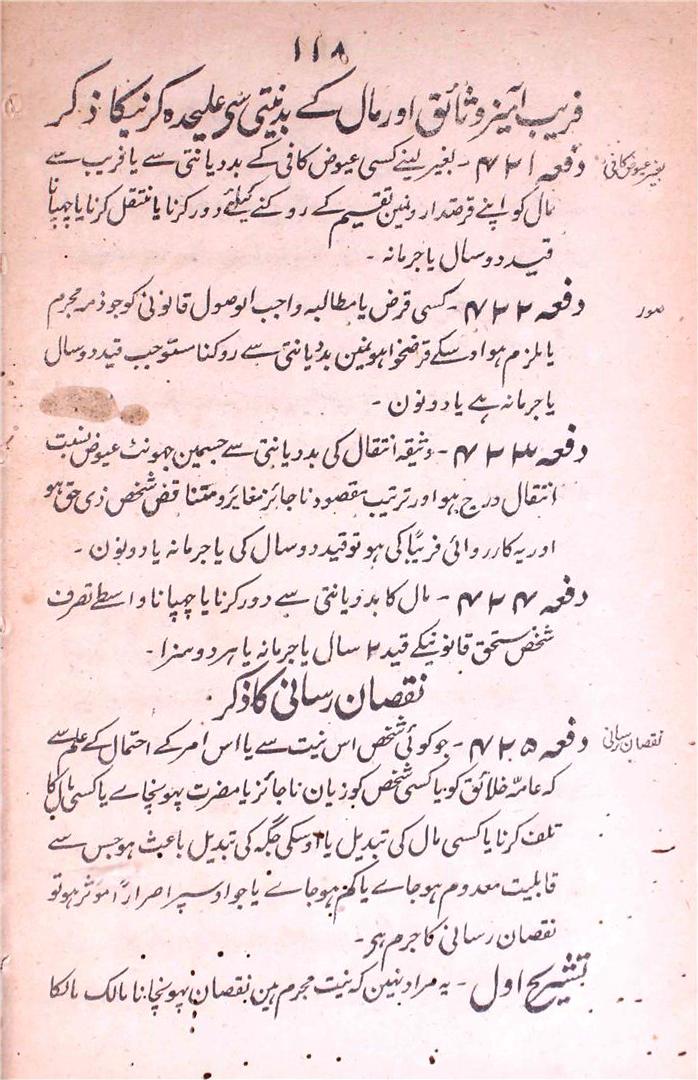 ۱۱۸
فریب آمیز وثائق اور مال کے بدنیتی سی علیحدہ کرنیکا ذکر
بغیر عیوض کافی
دفعہ ۴۲۱ - بغیر لینے کسی عیوض کافی کے بددیانتی سے یا فریب سے
مال کو اپنے قرضدارونمین تقسیم کے روکنے کیلئے دور کرنا یا منتقل کرنا یا چھپانا
قید دو سال یا جرمانہ -
دفعہ ۴۲۲ - کسی قرض یا مطالبہ واجب الوصول قانونی کو جو ذمہ مجرم
یا ملزم ہو اوسکے قرضخواہونمین بددیانتی سے روکنا مستوجب قید دو سال
یا جرمانہ ہے یا دونون -
دفعہ ۴۲۳ - وثیقہ انتقال کی بددیانتی سے جسمین جھونٹ عیوض نسبت
انتقال درج ہو اور ترتیب مقصود ناجائز مغایر و متناقض شخص ذی حق ہو
اور یہ کارروائی فریبًا کی ہو تو قید دو سال کی یا جرمانہ یا دونون -
دفعہ ۴۲۴ - مال کا بددیانتی سے دور کرنا یا چھپانا واسطے تصرف
شخص مستحق قانونیکے قید ۲ سال یا جرمانہ یا ہر دو سزا -
نقصان رسانی کا ذکر
نقصان رسانی
دفعہ ۴۲۵ - جو کوئی شخص اس نیت سے یا اس امر کے احتمال کے علم سے
کہ عامہ خلائق کو یا کسی شخص کو زیان ناجائز یا مضرت پہونچاے یا کسی مال کا
تلف کرنا یا کسی مال کی تبدیل یا اوسکی جگہ کی تبدیل باعث ہو جس سے
قابلیت معدوم ہو جاے یا کم ہو جاے یا جو اوسپر اصرارًا موثر ہو تو
نقصان رسانی کا جرم ہی -
تشریح اول - یہ مراد نہین کہ نیت مجرم مین نقصان پہونچانا مالک مال کا